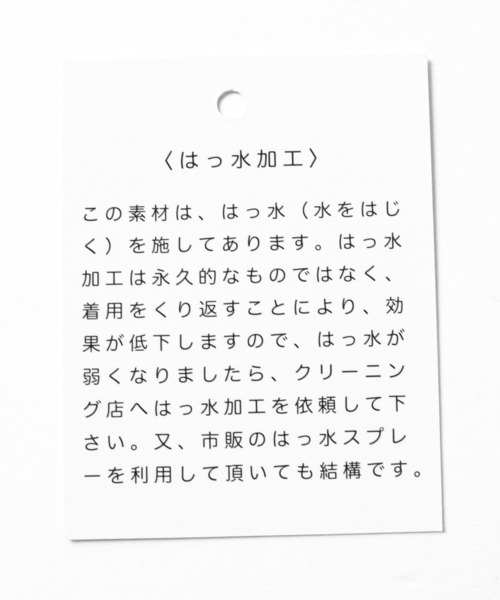 〈はっ水加工〉
この素材は、はっ水（水をはじ
く）を施してあります。はっ水
加工は永久的なものではなく、
着用をくり返すことにより、効
果が低下しますので、はっ水が
弱くなりましたら、クリーニン
グ店へはっ水加工を依頼して下
さい。又、市販のはっ水スプレ
ーを利用して頂いても結構です。